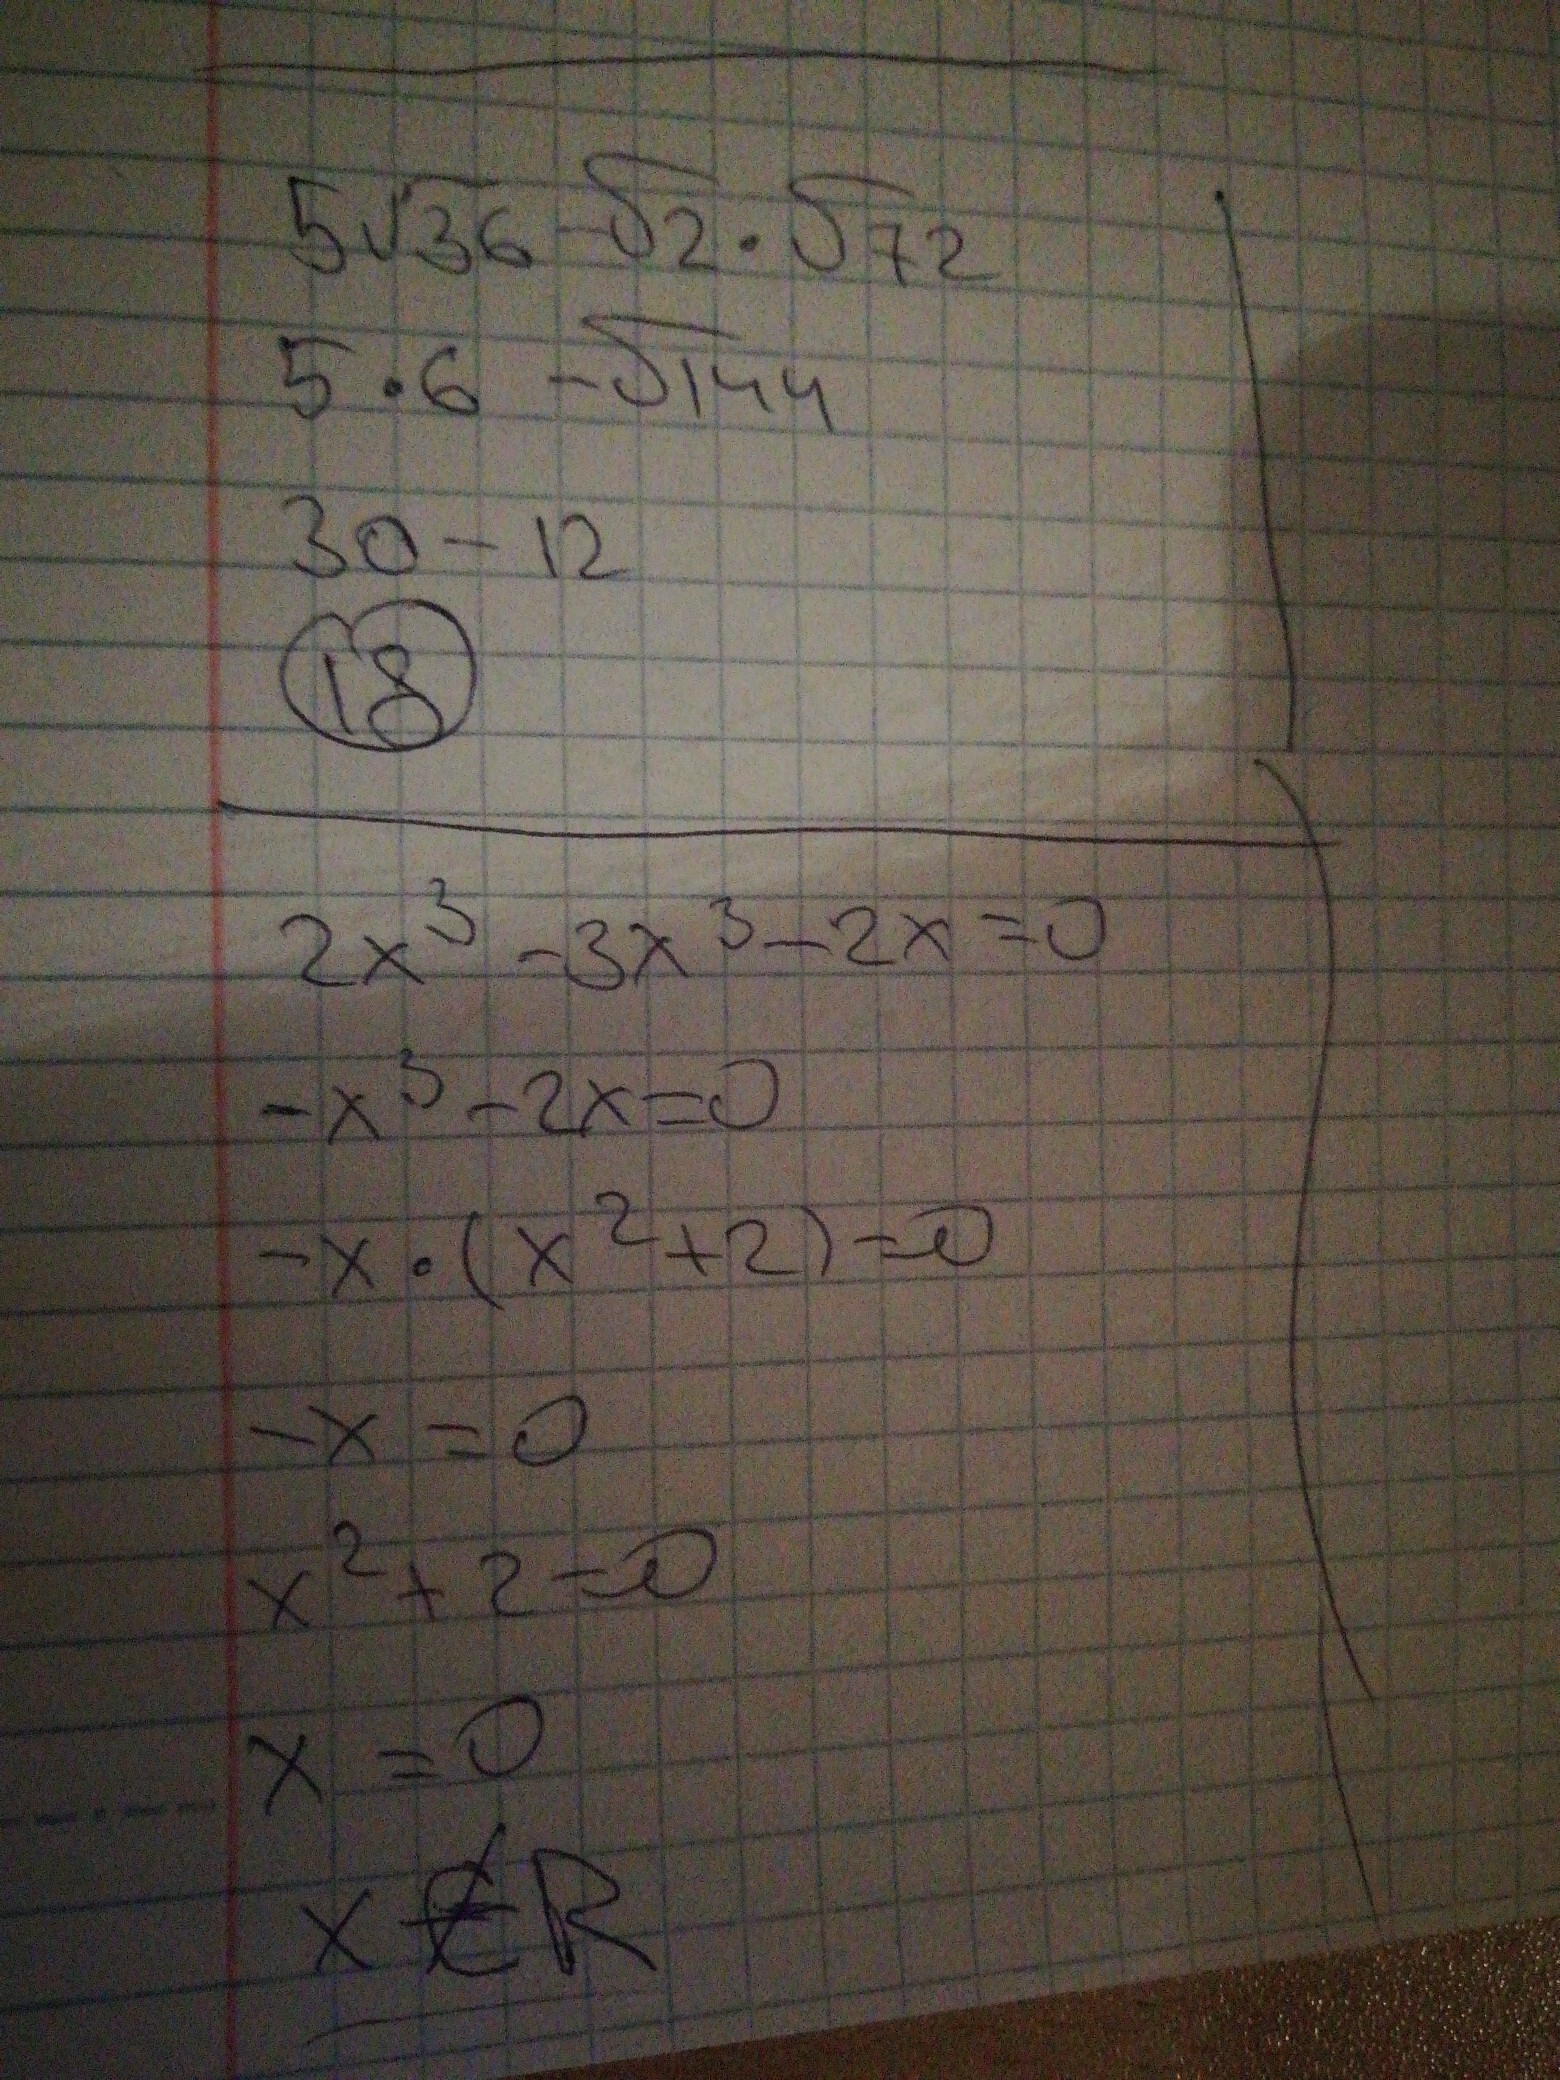 5√36 - √2 · √72
5 · 6 - √144
30 - 12
18
2x³ - 3x³ - 2x = 0
-x³ - 2x = 0
-x · (x² + 2) = 0
-x = 0
x² + 2 = 0
x = 0
x ∉ R